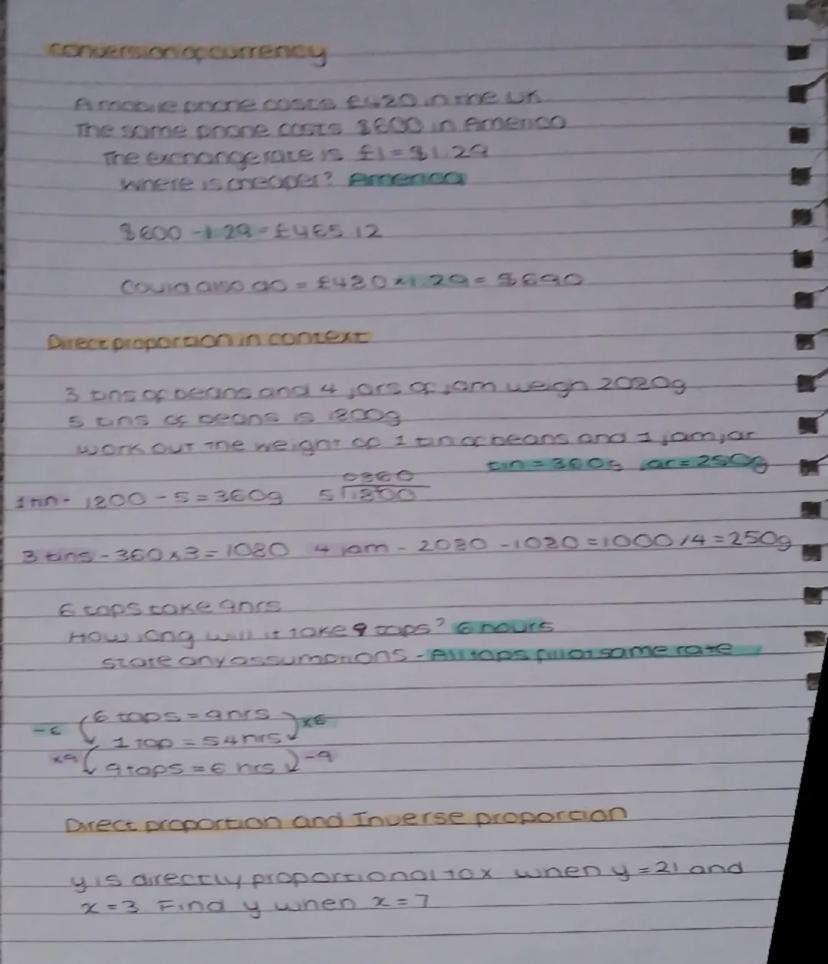 Conversion of currency
A mobile phone costs £480 in the UK
The same phone costs $600 in America
The exchange rate is £1 = $1.29
Where is cheaper? America
$600 ÷ 1.29 = £465.12
Could also do = £480 × 1.29 = $690
Direct proportion in context
3 tins of beans and 4 jars of jam weigh 2080g
5 tins of beans is 1800g
work out the weight of 1 tin of beans and 1 jam jar
tin = 360g jar = 250g
1 tin - 1800 ÷ 5 = 360g 5 1800 0360
3 tins - 360 × 3 = 1080 4 jam - 2080 - 1080 = 1000 / 4 = 250g
6 taps take 9hrs
How long will it take 9 taps? 6 hours
State any assumptions - All taps fill at same rate
÷6 6 taps = 9hrs ×6
1 tap = 54hrs
×9 9 taps = 6 hrs ÷9
Direct proportion and Inverse proportion
y is directly proportional to x when y = 21 and
x = 3 Find y when x = 7